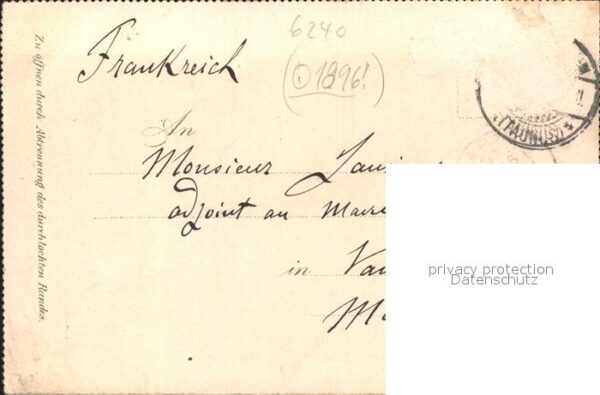 Zu öffnen durch Abtrennung des durchlochten Randes.
6240
(O 1896!)
Frankreich
An
Monsieur
adjoint au Maire
in
(TAUNUS)
privacy protection
Datenschutz